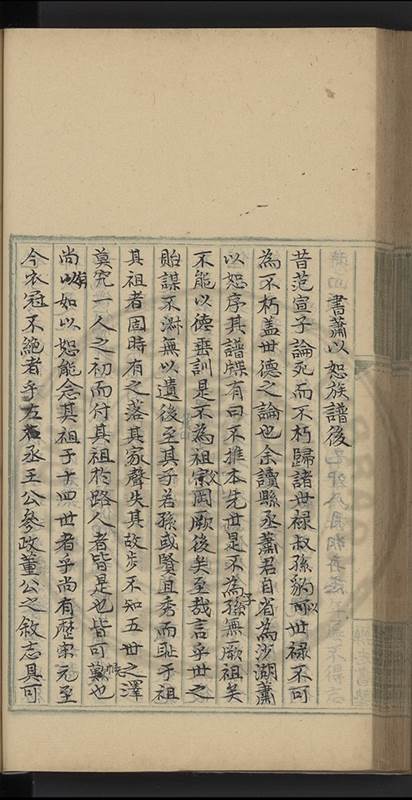 書蕭以恕族譜後
昔范宣子論死而不朽歸諸世祿叔孫豹以世祿不可
為不朽蓋世德之論也余讀縣丞蕭君自省為沙湖蕭
以恕序其譜牒有曰不推本先世是不為孫子無厥祖矣
不能以德垂訓是不為祖宗罔厥後矣至哉言乎世之
貽謀不淑無以遺後至其子若孫或賢且秀而恥于祖
其祖者固時有之落其家聲失其故步不知五世之澤
莫究一人之初而付其祖於路人者皆是也皆可歎也
尚如以恕能念其祖于十四世者乎尚有歷宋元至
今衣冠不絕者乎左丞王公參政董公之敘志具可